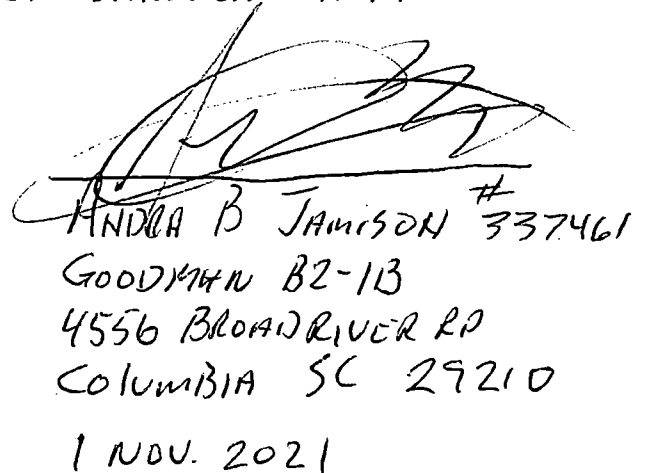 ANDRA B JAMISON #337461
GOODMAN B2-1B
4556 BROAD RIVER RD
COLUMBIA SC 29210
1 NOV. 2021